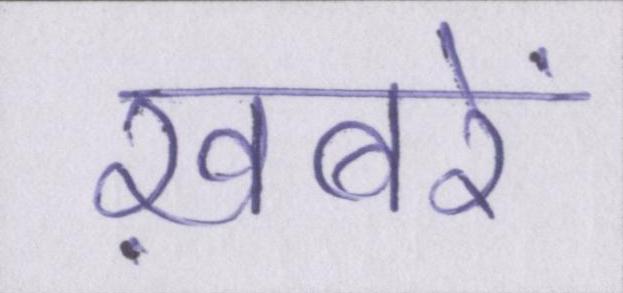 ख़बरें